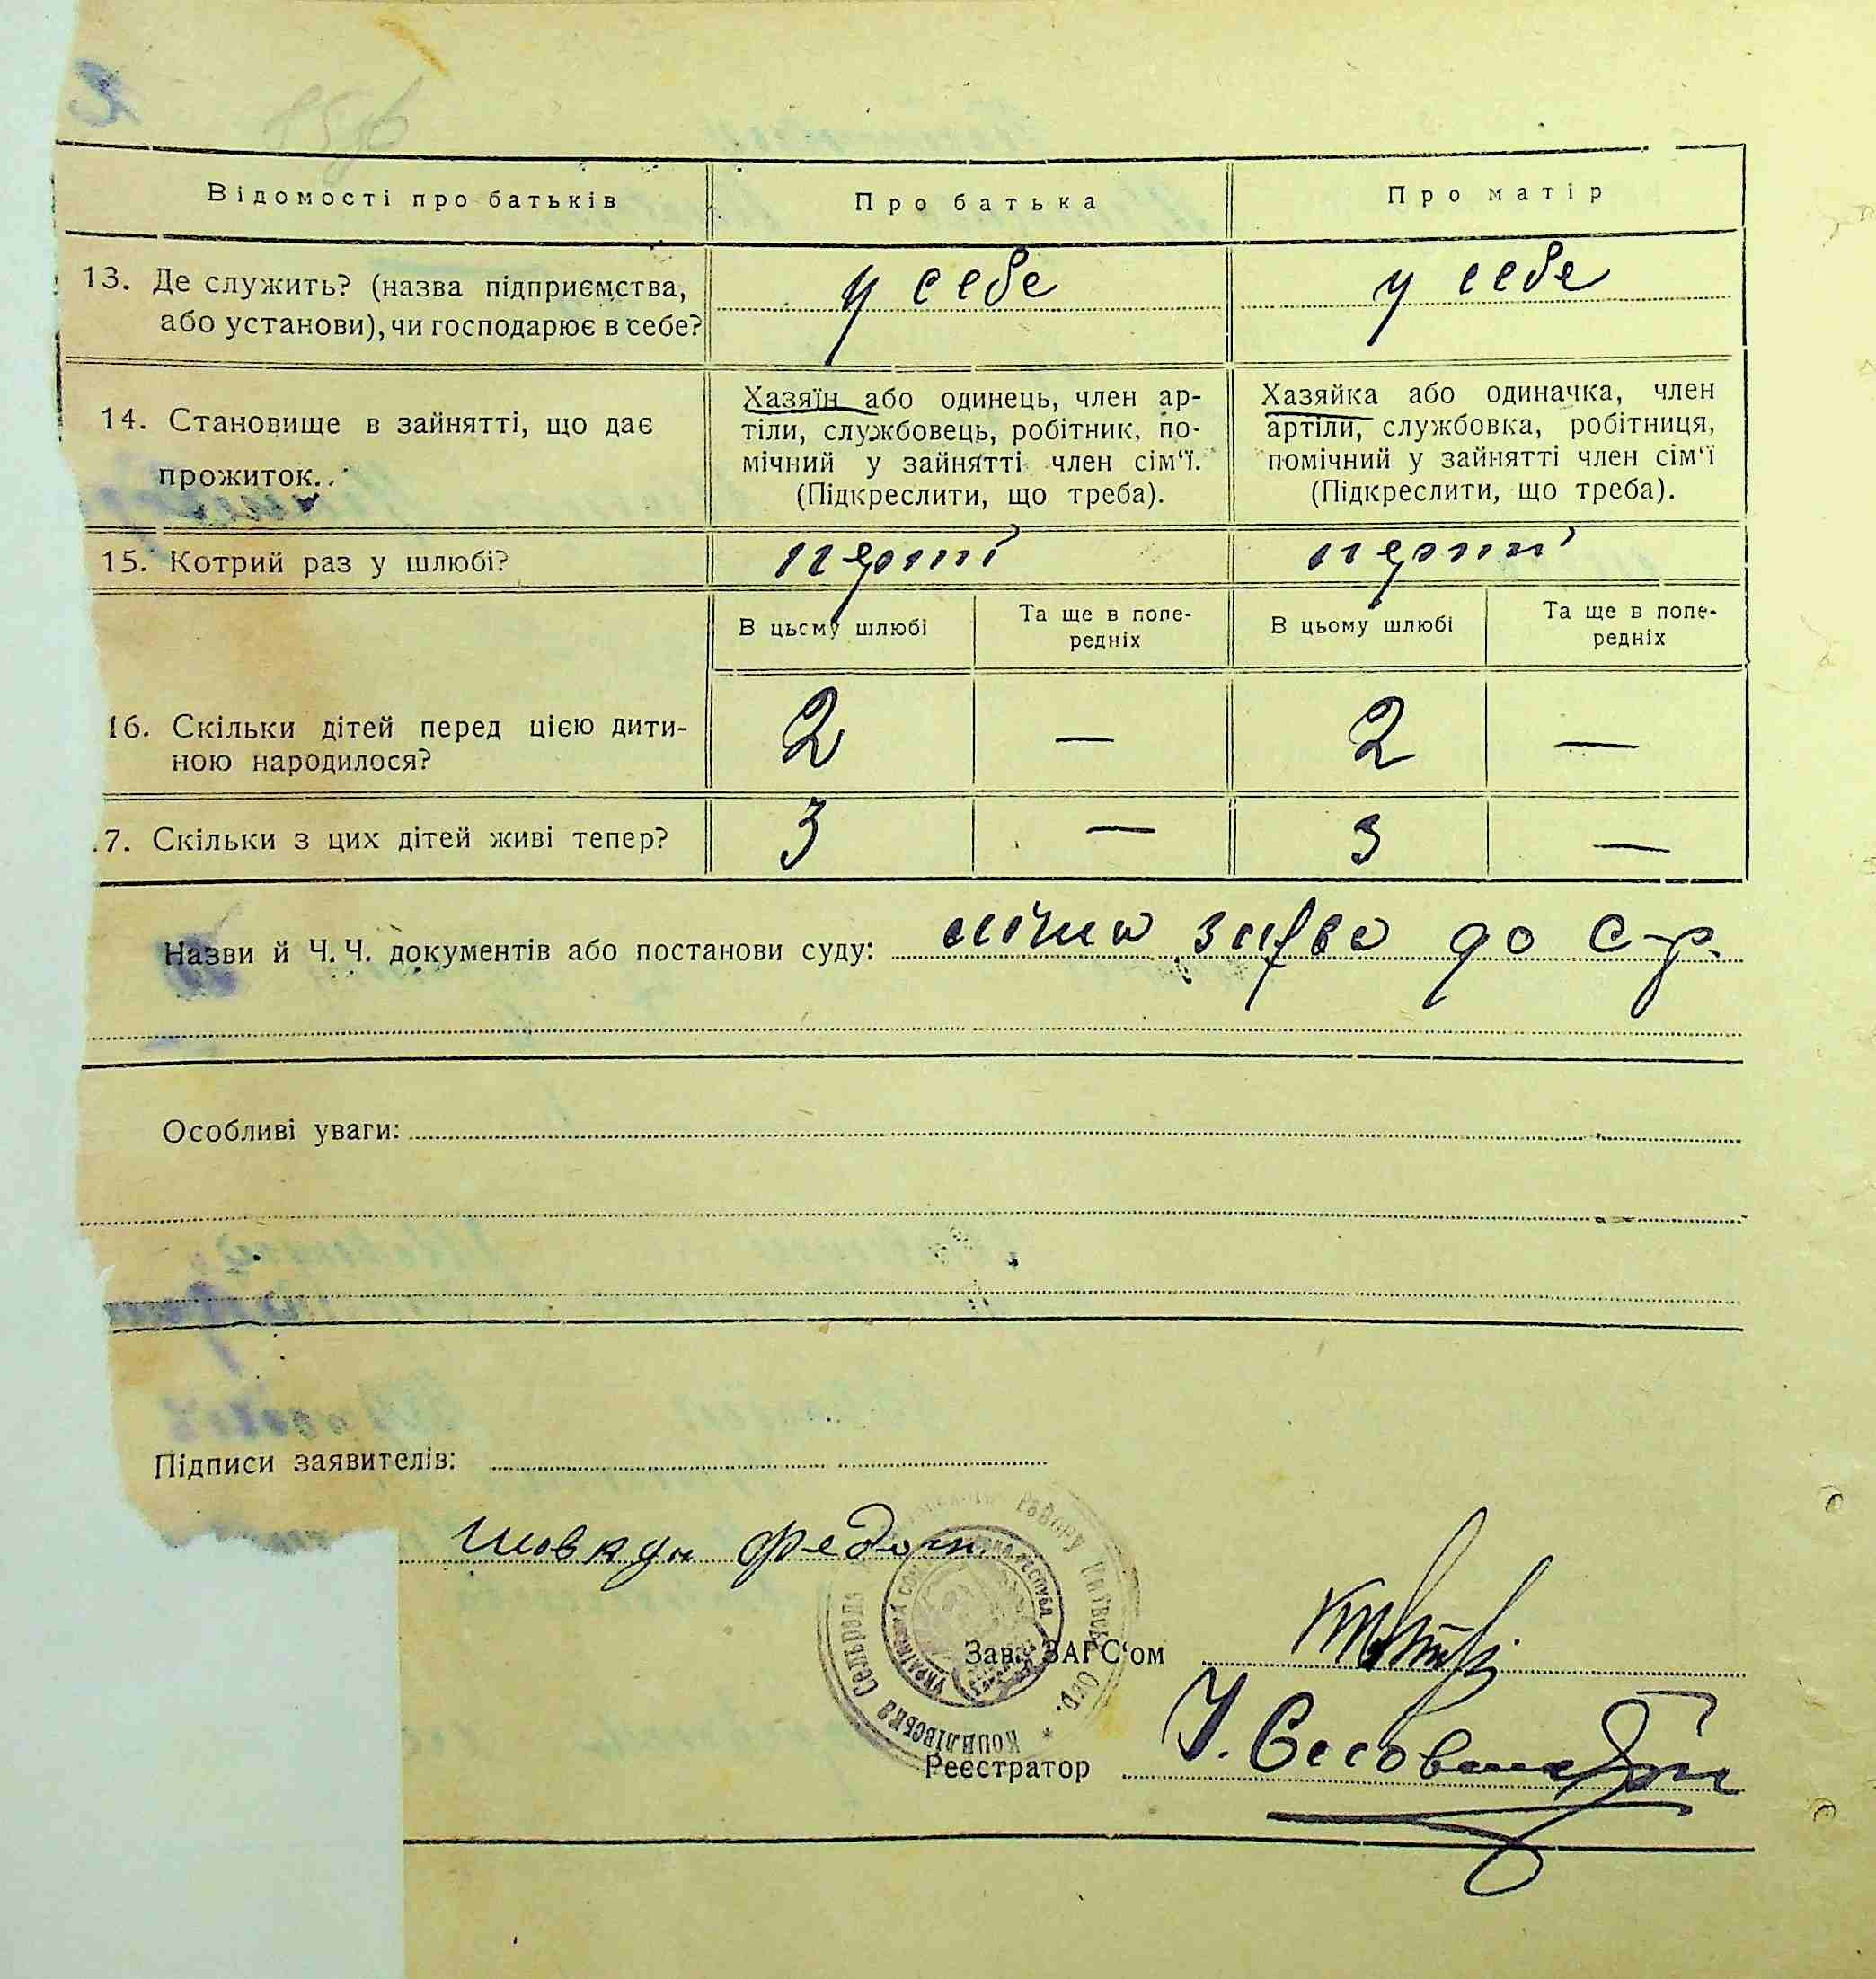 Відомості про батьків
Про батька
Про матір
13. Де служить? (назва підприємства,
або установи), чи господарює в себе?
у себе
у себе
14. Становище в зайнятті, що дає
прожиток..
Хазяїн або одинець, член ар-
тіли, службовець, робітник, по-
мічний у зайнятті член сім‘ї.
(Підкреслити, що треба).
Хазяйка або одиначка, член
артіли, службовка, робітниця,
помічний у зайнятті член сім‘ї
(Підкреслити, що треба).
15. Котрий раз у шлюбі?
перший
перший
В цьому шлюбі
Та ще в попе-
редніх
В цьому шлюбі
Та ще в попе-
редніх
16. Скільки дітей перед цією дити-
ною народилося?
2
—
2
—
7. Скільки з цих дітей живі тепер?
3
—
3
—
Назви й Ч. Ч. документів або постанови суду: до с-р.
Особливі уваги:
Підписи заявителів:
Шовкун Федот
Району
Копилівська Сельрада
Зав. ЗАГС‘ом
Реєстратор